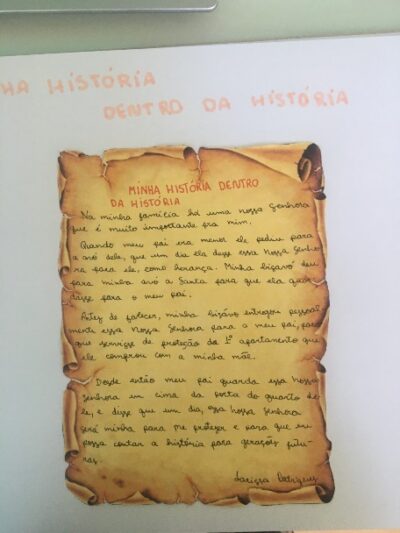 HA HISTÓRIA
DENTRO DA HISTÓRIA
MINHA HISTÓRIA DENTRO
DA HISTÓRIA
Na minha família há uma Nossa Senhora
que é muito importante pra mim.
Quando meu pai era menor ele pediu para
a avó dele, que um dia ela desse essa Nossa Senho
ra para ele, como herança. Minha bisavó deu
para minha avó a Santa para que ela guar
dasse para o meu pai.
Antes de falecer, minha bisavó entregou pessoal
mente essa Nossa Senhora para o meu pai, para
que servisse de proteção do 1º apartamento que
ele comprou com a minha mãe.
Desde então meu pai guarda essa Nossa
Senhora em cima da porta do quarto de
le, e disse que um dia, essa Nossa Senhora
será minha para me proteger e para que eu
possa contar a história para gerações futu-
ras.
Larissa